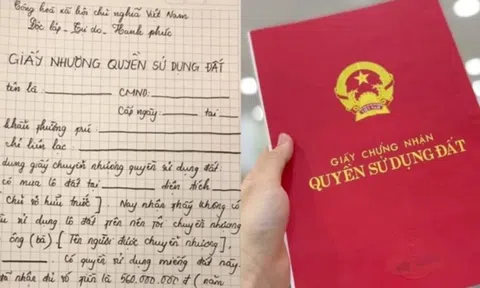 Cộng hoà xã hội chủ nghĩa Việt Nam
Độc lập - Tự do - Hạnh phúc
GIẤY NHƯỢNG QUYỀN SỬ DỤNG ĐẤT
tên là: CMND:
Cấp ngày: tại
khẩu thường trú:
chỉ liên lạc:
dụng giấy chuyển nhượng quyền sử dụng đất
có mua lô đất tại diện tích
[Chủ sở hữu trước]. Nay nhận thấy không có
sử dụng lô đất trên nên tôi chuyển nhượng
ông (bà) [Tên người được chuyển nhượng].
Có quyền sử dụng miếng đất này
đã nhận đủ số tiền là 560.000.000 đ (năm
VIỆT NAM
GIẤY CHỨNG NHẬN
QUYỀN SỬ DỤNG ĐẤT